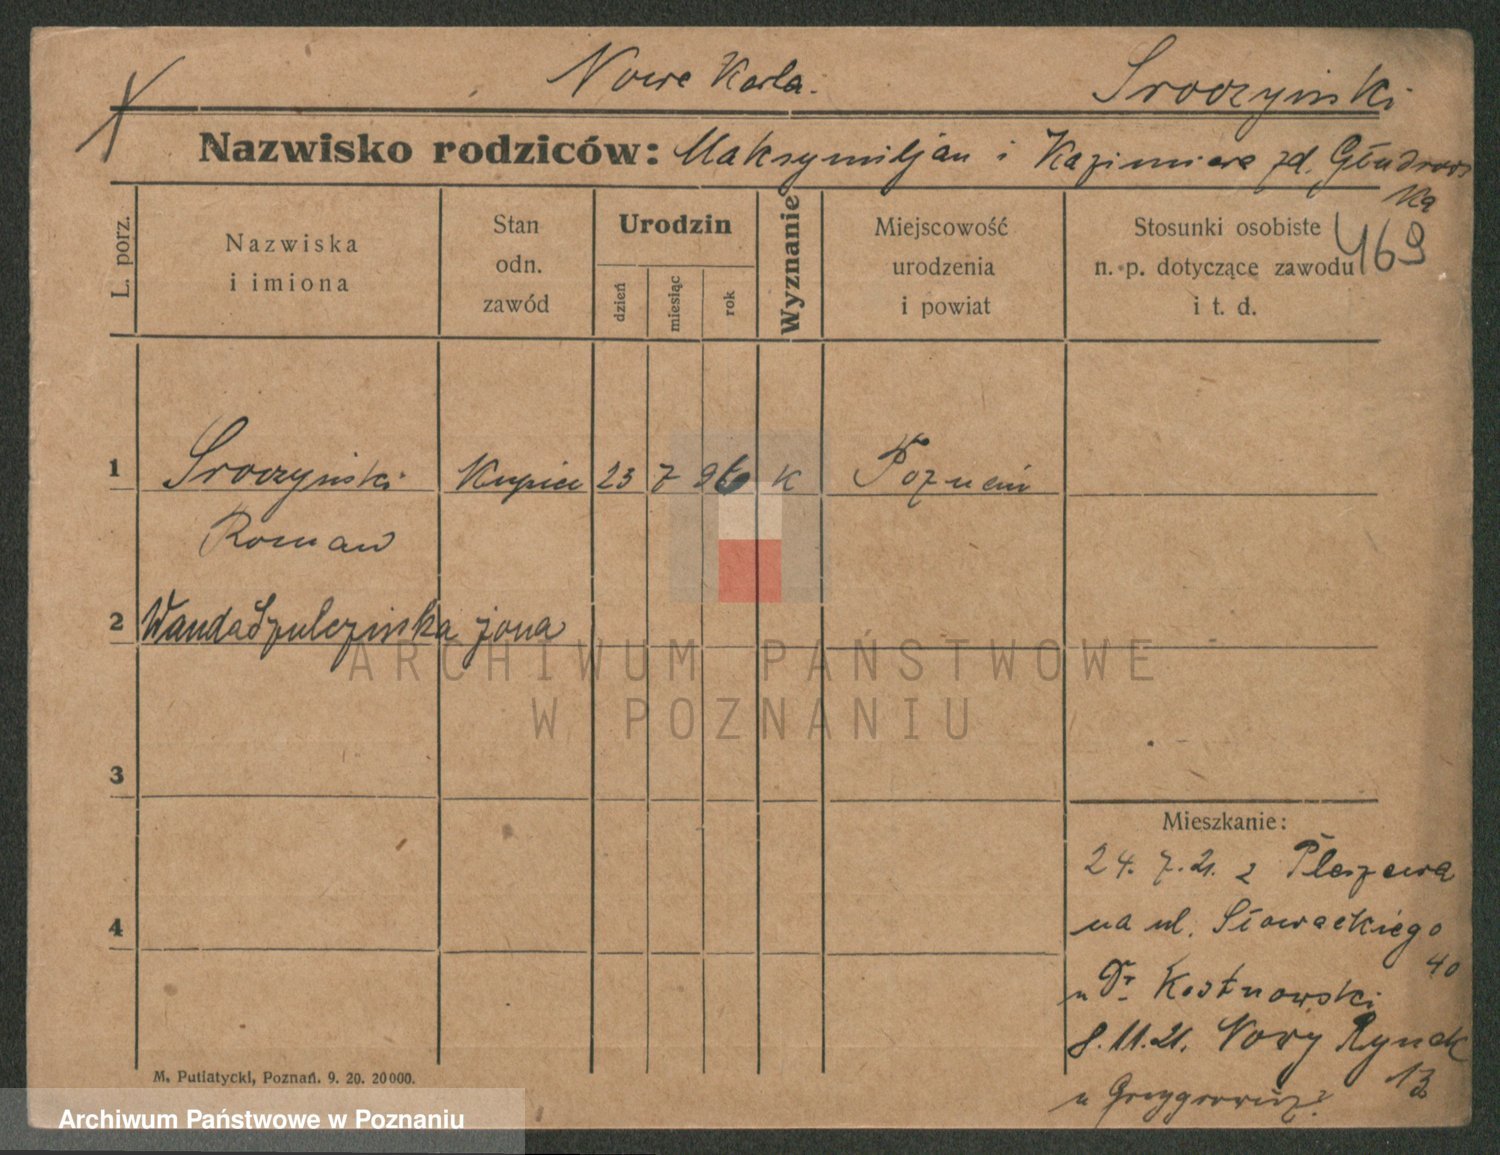 Nowe Karla.
Sroczyński
Nazwisko rodziców: Maksymiljan i Kazimiera zd.
ka
469
L. porz.
Nazwiska
i imiona
Stan
odn.
zawód
Urodzin
dzień
miesiąc
rok
Wyznanie
Miejscowość
urodzenia
i powiat
Stosunki osobiste
n. p. dotyczące zawodu
i t. d.
1 Sroczyński Kupiec 23 7 96 K Poznań
Roman
2 Wanda Szulczińska żona
3
4
Mieszkanie:
24. 7. 21. z Pleszewa
na ul. Słowackiego
40
u Dr. Kostnowski
8. 11. 21. Nowy Rynek
13
u
M. Putiatycki, Poznań. 9. 20. 20000.
ARCHIWUM PAŃSTWOWE
W POZNANIU
Archiwum Państwowe w Poznaniu